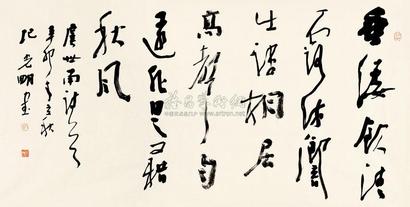 垂緌飲清
露流響
出疏桐居
高聲自
遠非是藉
秋風
虞世南詩
辛卯年
明書